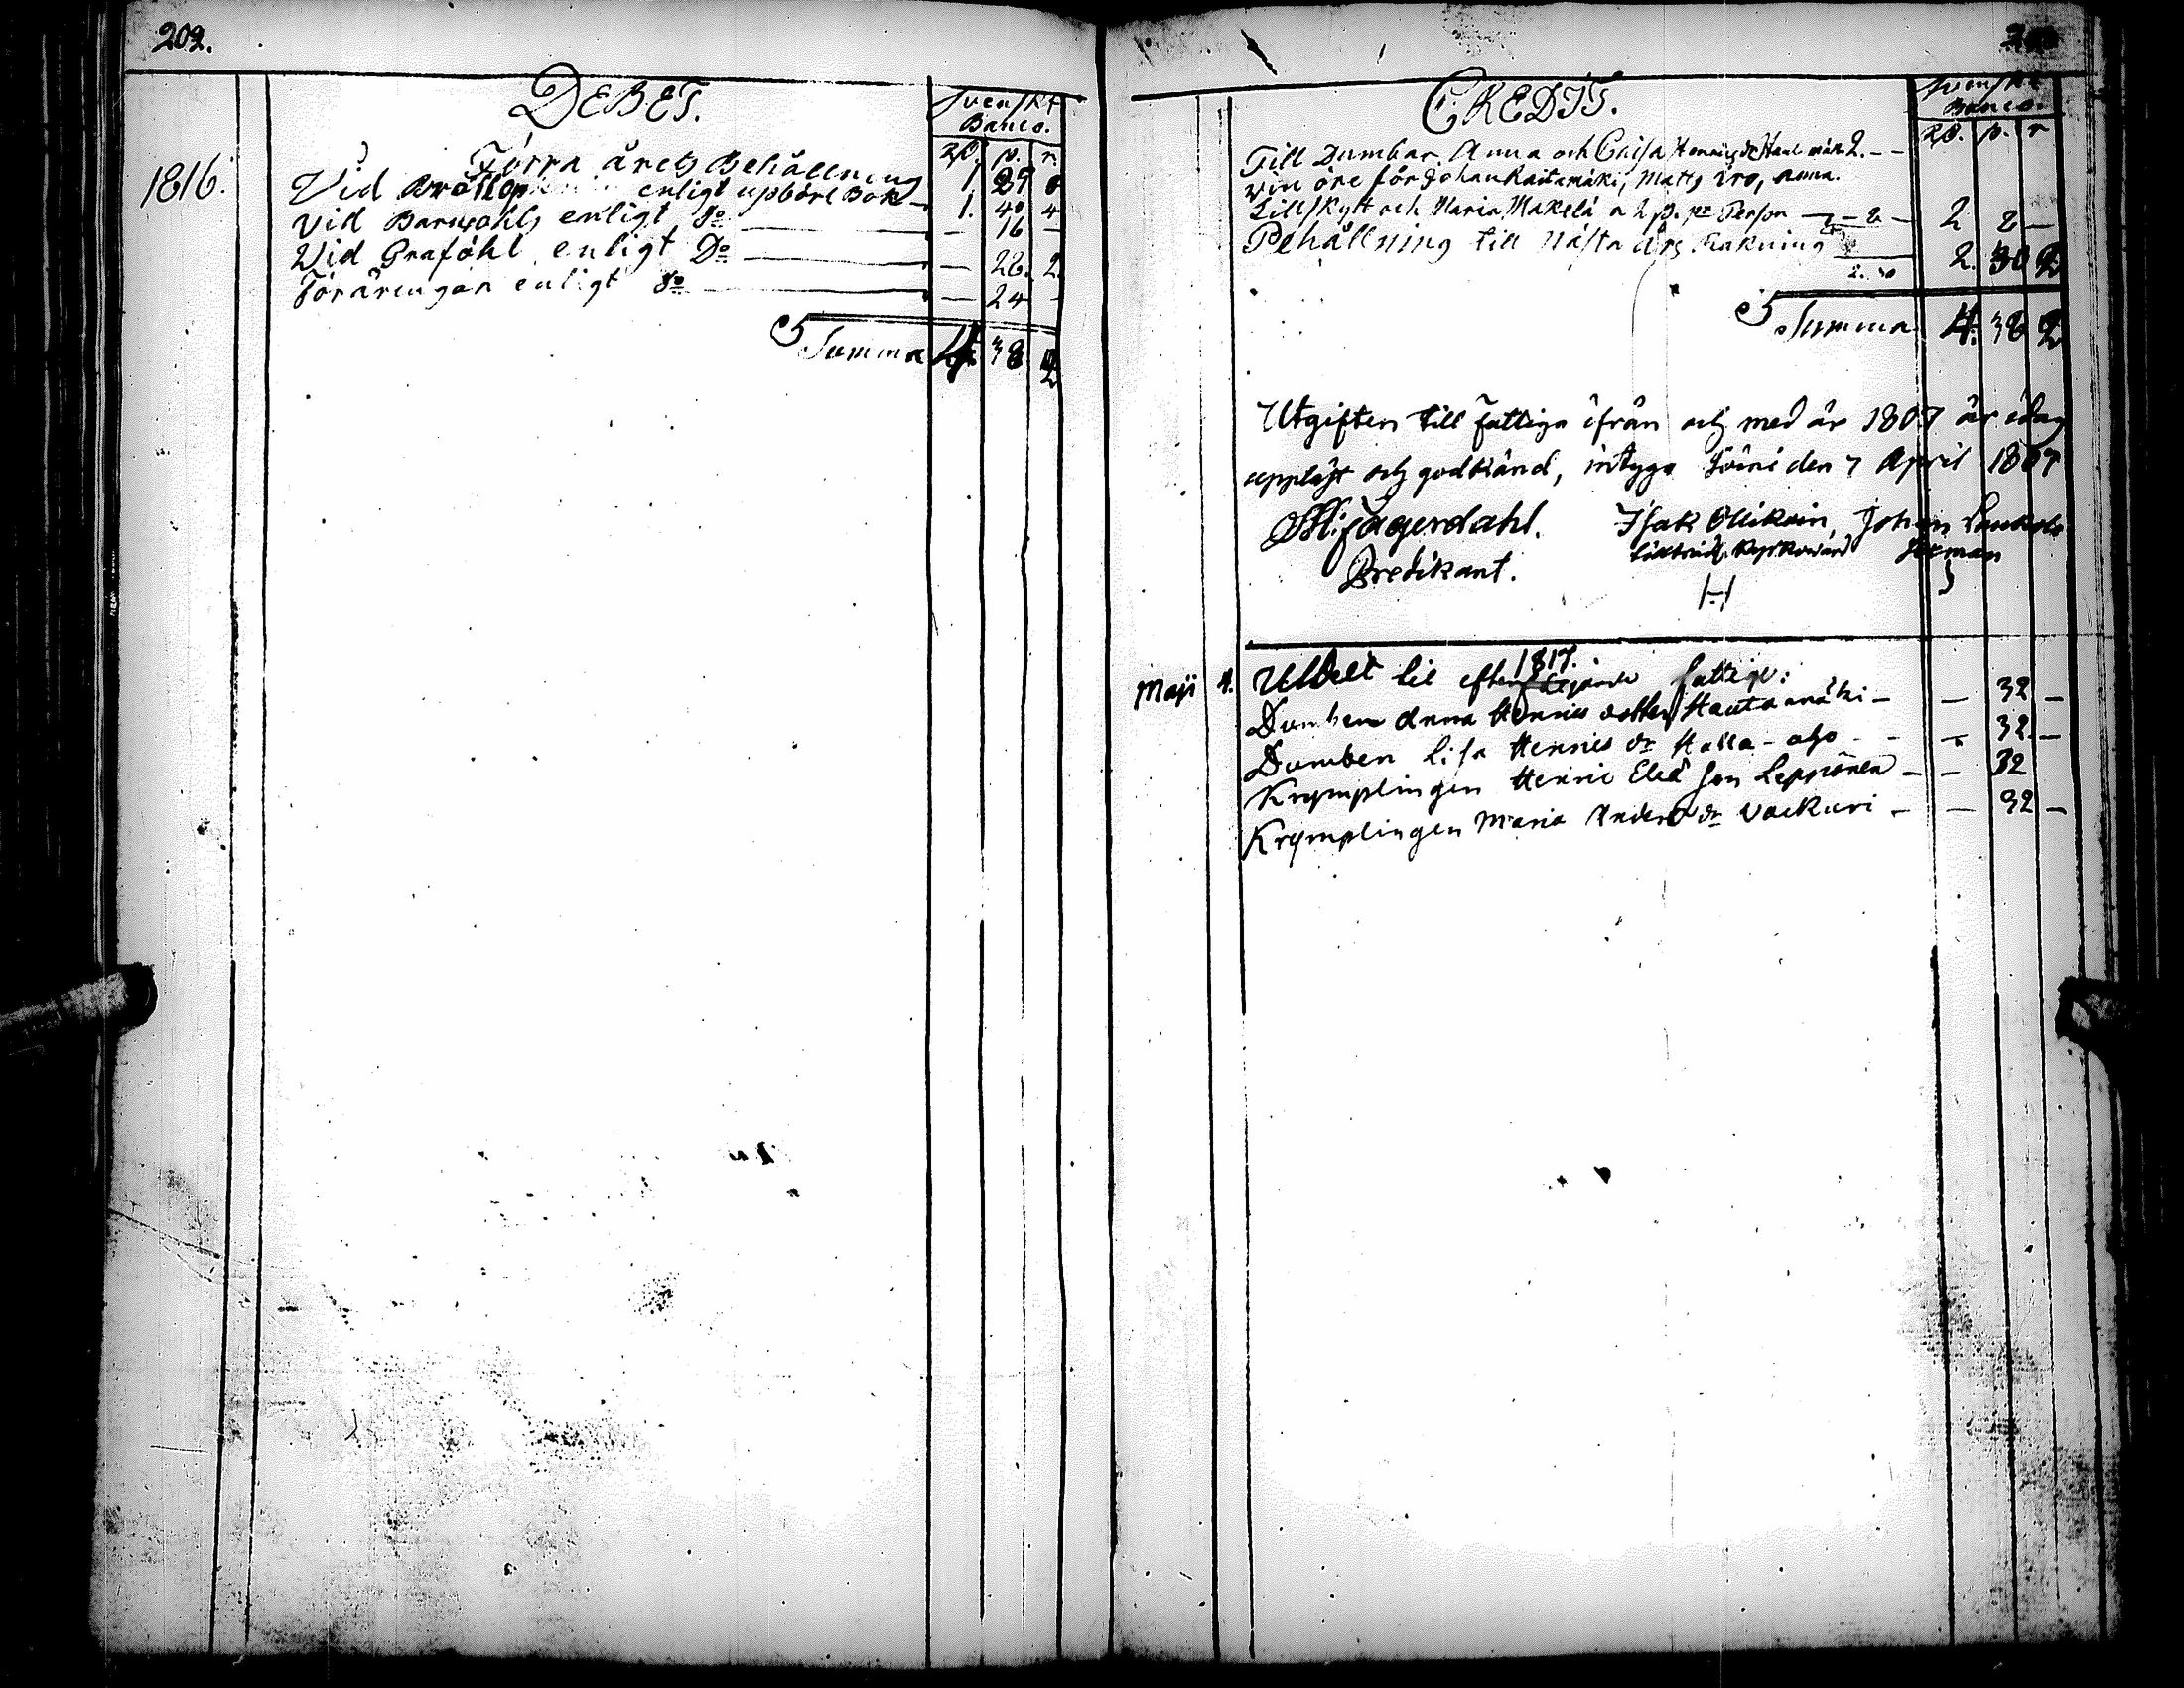 202.
DEBET.
Svenskt
Banco.
Rd. ß. r.
1816.
Förra årets Behållning 1 29
Vid Bröllop enligt upbörd Bok 1. 40 4
Vid Barnsöhl enligt do — 16 —
Vid Graföhl enligt Do — 28. 2.
Föräringar enligt do — 24 -
Summa 4. 38 2
CREDIT.
Svenskt
Banco.
Rd. ß. r
Till Dumbar Anna och Caisa 2. - -
vin öre för Johan Raitamäki, Matts Iro, Anna
Lillskytt och Maria Makelä a 2 ß. pr Person — 8 — 2 8 —
Behållning till nästa års Räkning 2. 30 2. 30 2
Summa 4. 38 2
Utgiften till fattiga ifrån och med år 1807 är idag
uppläst och godkänd, intyga Soini den 7 April 1817
Jägerdahl. Isak Ollikain, Johan
Predikant. Kyrkovärd
H
1817.
Maji 4. Utdelt til efterföljande fattige:
Dumben Anna Henrics dotter Hautamäki — — 32 —
Dumben Lisa Henrics dr Halla-aho - - — 32 —
Krymplingen Henric Elias son Leppönen — — 32
Krymplingen Maria Anders dr Vackuri — — 32 —